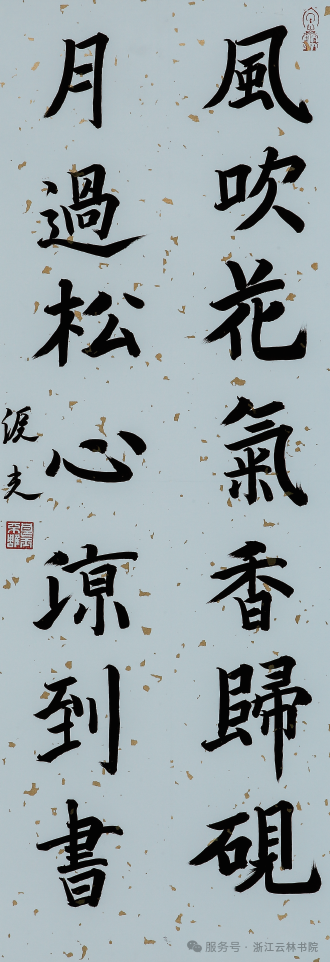 風吹花氣香歸硯
月過松心涼到書
服务号 · 浙江云林书院